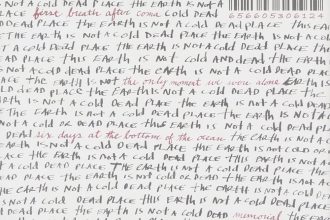 COLD DEAD PLACE THE EARTH IS NOT A
PLACE first breath after coma COLD DEAD 656605306124
PLACE THE EARTH IS NOT A COLD DEAD PLACE THE
A COLD DEAD PLACE THE EARTH IS NOT A COLD DEAD
DEAD PLACE THE EARTH IS NOT A COLD DEAD PLACE
PLACE THE EARTH IS NOT the only moment we were alone EARTH IS
COLD DEAD PLACE THE EARTH IS NOT A COLD DEAD PLACE
EARTH IS NOT A COLD DEAD PLACE THE EARTH IS NOT A COLD
NOT A COLD DEAD PLACE THE EARTH IS NOT A COLD DEAD
DEAD six days at the bottom of the ocean THE EARTH IS NOT A
PLACE THE EARTH IS NOT A COLD DEAD PLACE THE EARTH IS NOT
EARTH IS NOT A COLD DEAD PLACE THE EARTH IS NOT A COLD DEAD
THE EARTH IS NOT A COLD DEAD PLACE THE EARTH IS NOT A
COLD DEAD PLACE THE EARTH IS NOT A COLD DEAD PLACE
EARTH IS NOT A COLD DEAD PLACE memorial THE